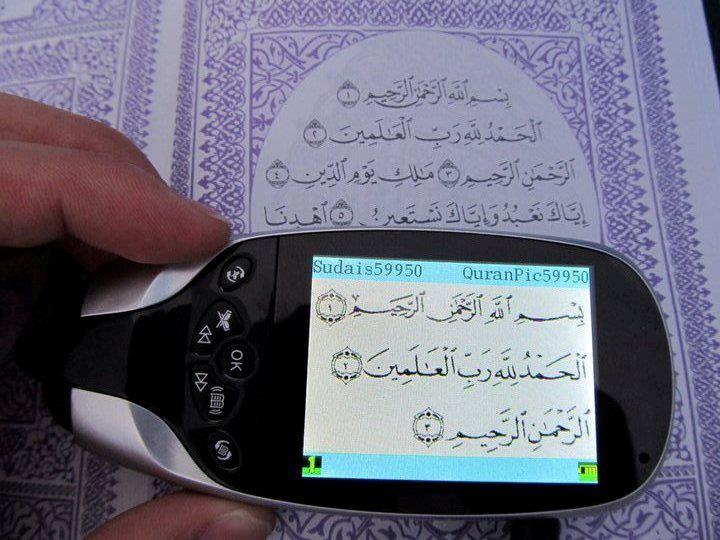 بِسْمِ ٱللَّهِ ٱلرَّحْمَٰنِ ٱلرَّحِيمِ ١
ٱلْحَمْدُ لِلَّهِ رَبِّ ٱلْعَٰلَمِينَ ٢
ٱلرَّحْمَٰنِ ٱلرَّحِيمِ ٣ مَٰلِكِ يَوْمِ ٱلدِّينِ ٤
إِيَّاكَ نَعْبُدُ وَإِيَّاكَ نَسْتَعِينُ ٥ ٱهْدِنَا
Sudais59950 QuranPic59950
بِسْمِ ٱللَّهِ ٱلرَّحْمَٰنِ ٱلرَّحِيمِ ١
ٱلْحَمْدُ لِلَّهِ رَبِّ ٱلْعَٰلَمِينَ ٢
ٱلرَّحْمَٰنِ ٱلرَّحِيمِ ٣
OK